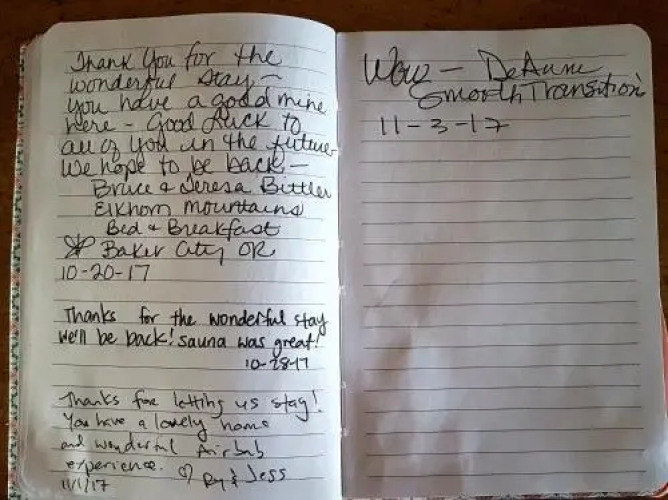 Thank you for the
wonderful stay –
you have a good mine
here – Good Luck to
all of you in the future
We hope to be back –
Bruce & Teresa Bittler
Elkhorn Mountains
Bed & Breakfast
Baker City, OR
10-20-17
Thanks for the wonderful stay
we'll be back! sauna was great!
10-28-17
Thanks for letting us stay!
You have a lovely home
and wonderful Airbnb
experience. ♡ & Jess
11/1/17
Wow – DeAnne
Smooth Transition
11-3-17